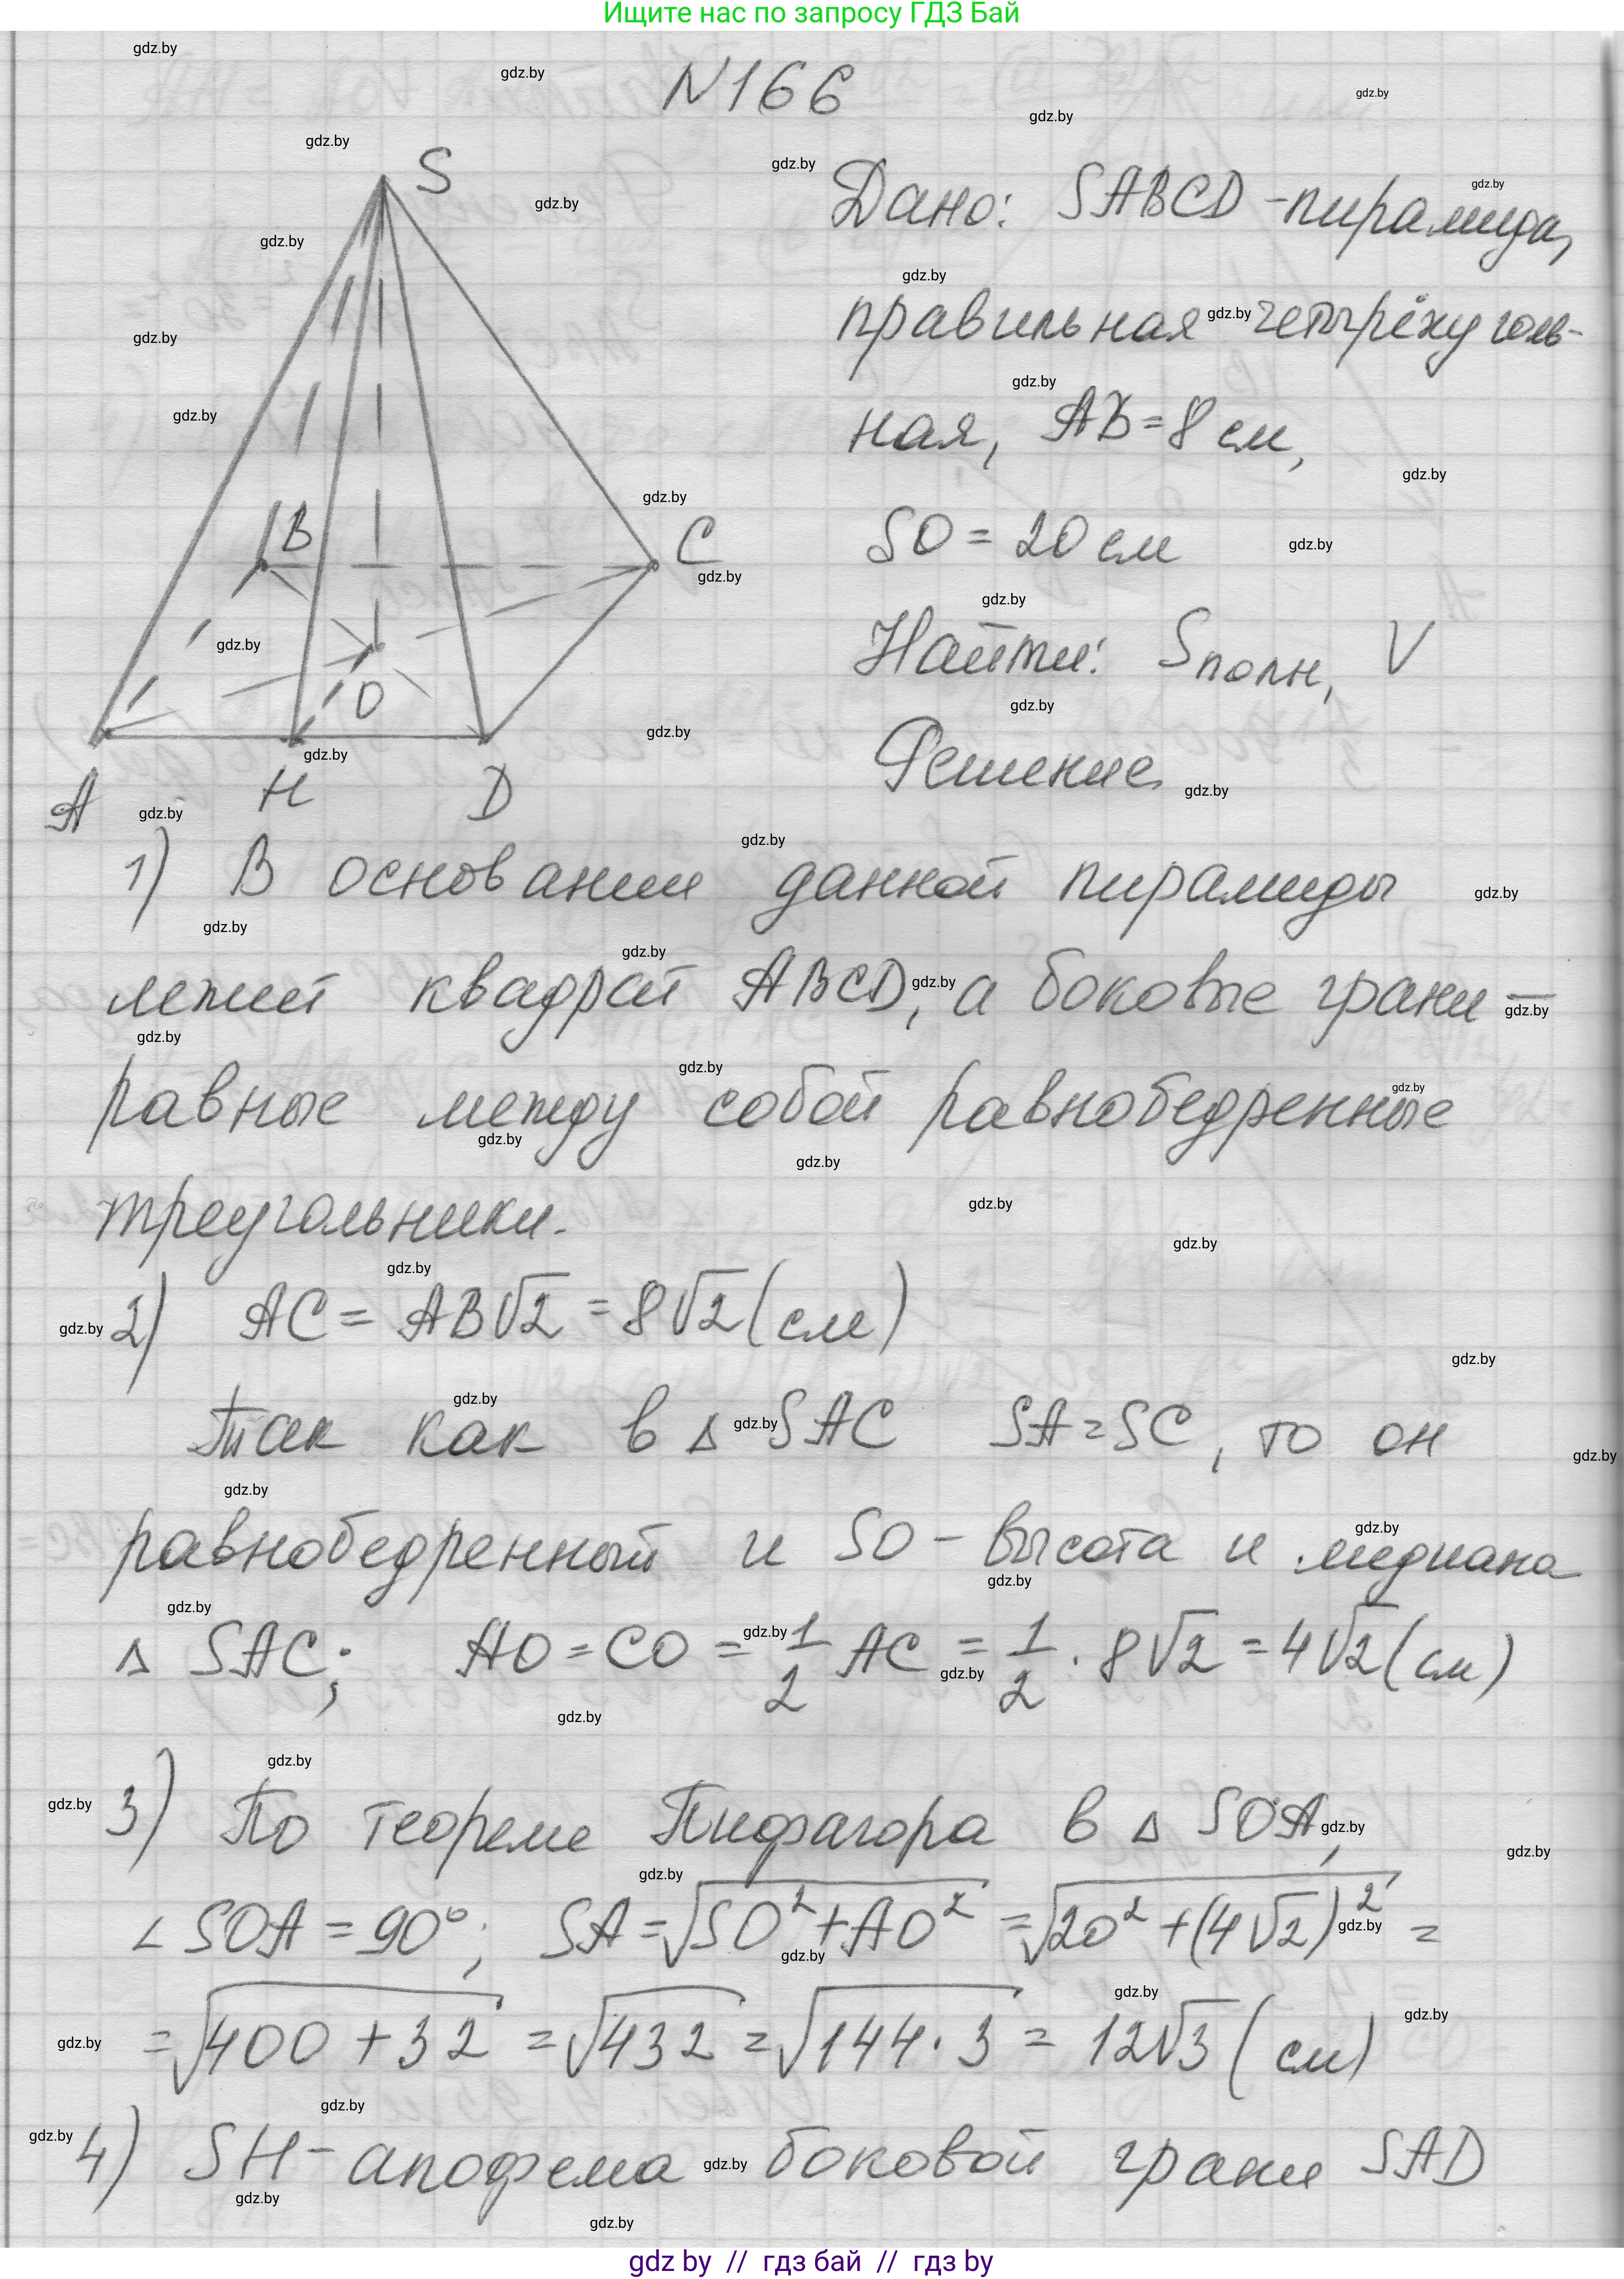 Ищите нас по запросу ГДЗ Бай
N166
S
B
C
O
A
H
D
Дано: SABCD - пирамида,
правильная четырёхуголь-
ная, AB = 8 см,
SO = 20 см
Найти: Sполн, V
Решение
1) В основании данной пирамиды
лежит квадрат ABCD, а боковые грани —
равные между собой равнобедренные
треугольники.
2) AC = AB√2 = 8√2 (см)
Так как в Δ SAC SA = SC, то он
равнобедренный и SO - высота и медиана
Δ SAC; AO = CO = 1/2 AC = 1/2 · 8√2 = 4√2 (см)
3) По теореме Пифагора в Δ SOA,
∠ SOA = 90°; SA = √SO² + AO² = √20² + (4√2)² =
= √400 + 32 = √432 = √144 · 3 = 12√3 (см)
4) SH - апофема боковой грани SAD
gdz by // гдз бай // гдз by